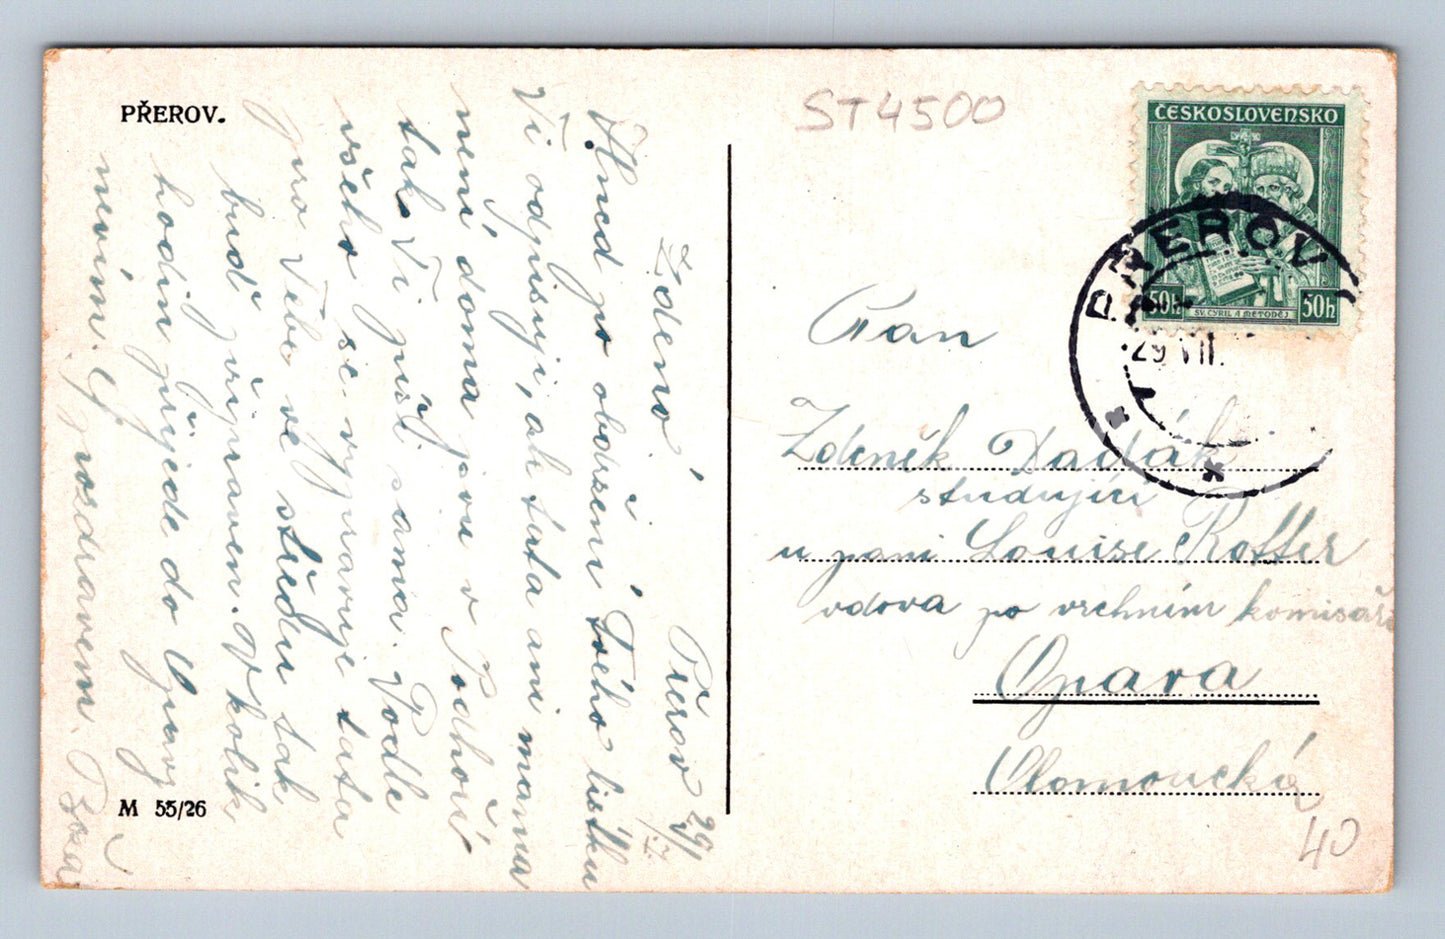 PŘEROV.
ST4500
ČESKOSLOVENSKO
50h
SV. CYRIL A METODĚJ
50h
PŘEROV
29 VII.
Přerov 29/
Zdeno!
Ihned po obdržení Tvého lístku
Ti odpisuji, ale tata ani mama
není doma jsou v Podhoří
tak Ti píši sama. Podle
všeho se vypravuje tata
pro Tebe ve středu tak
buď připraven. V kolik
hodin přijede do Opavy
nevím. S pozdravem
Pan
Zdeněk Daďák
studující
u paní Louise Rotter
vdova po vrchním komisaři
Opava
Olomoucká
40
M 55/26